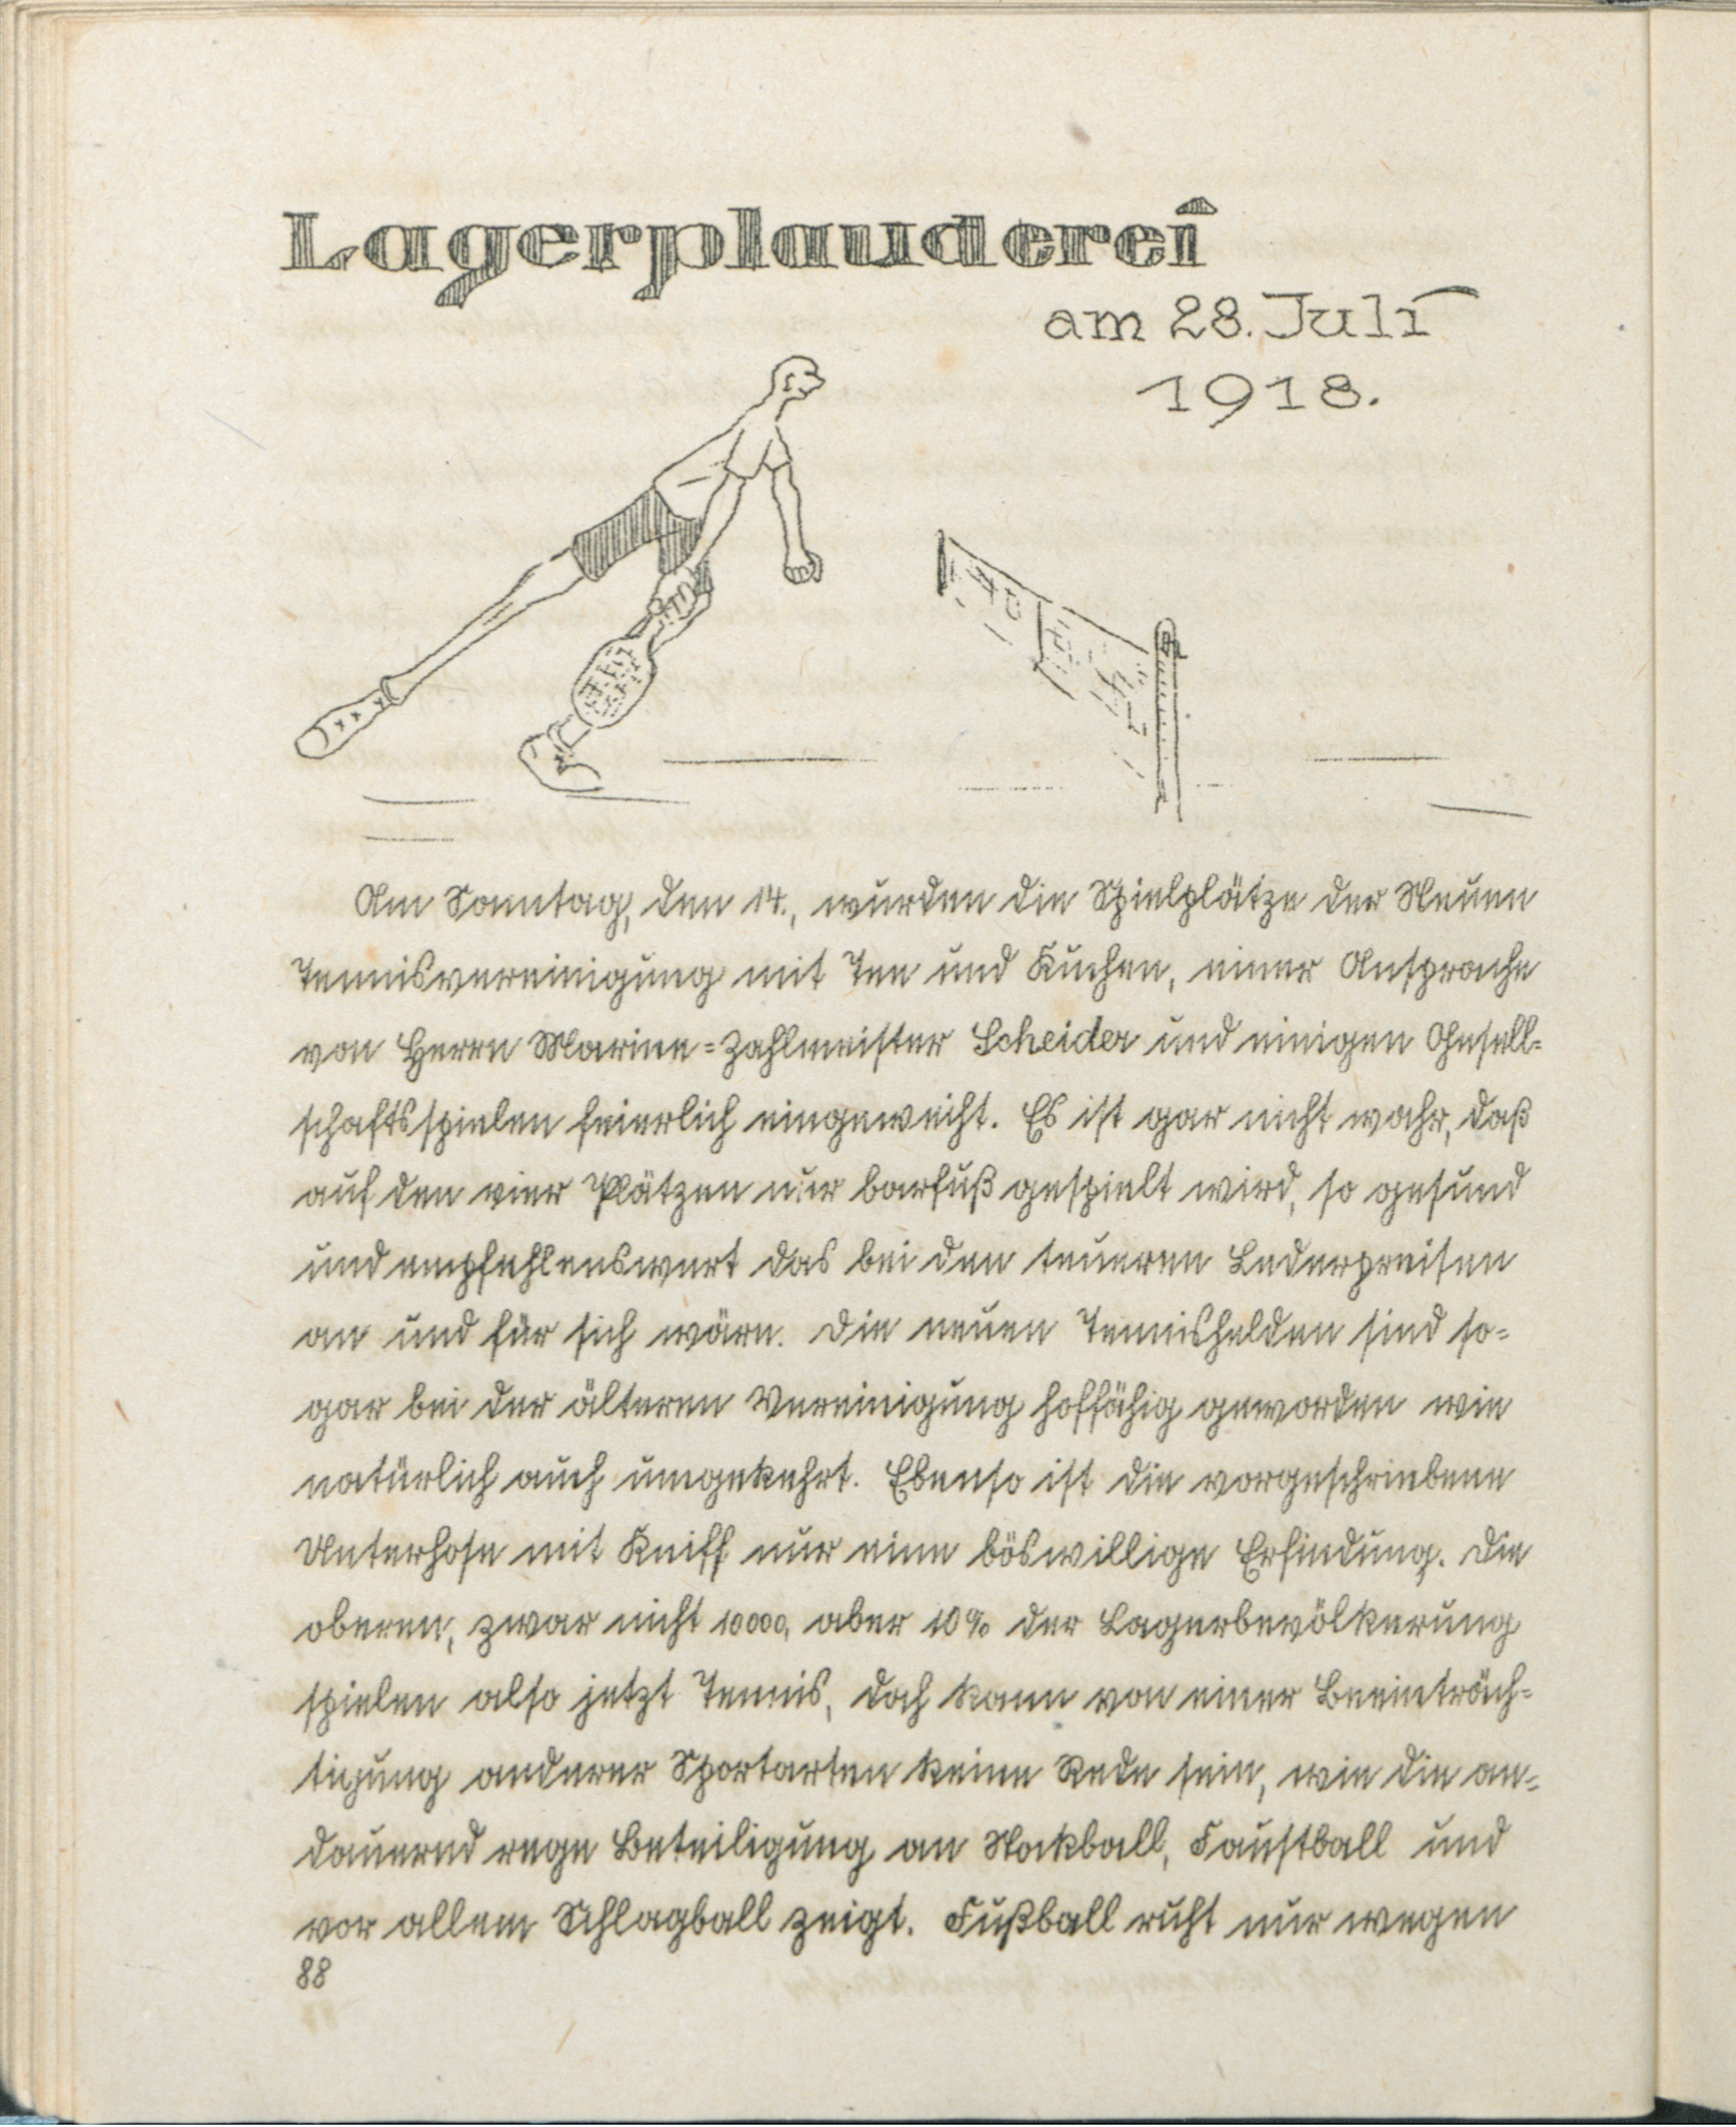 Lagerplauderei
am 28. Juli
1918.
Am Sonntag, den 14., wurden die Spielplätze der Neuen
Tennisvereinigung mit Tee und Kuchen, einer Ansprache
von Herrn Marine-Zahlmeister Scheider und einigen Gesell-
schaftsspielen feierlich eingeweiht. Es ist gar nicht wahr, daß
auf den vier Plätzen nur barfuß gespielt wird, so gesund
und empfehlenswert das bei den teueren Lederpreisen
an und für sich wäre. Die neuen Tennishelden sind so-
gar bei der älteren Vereinigung hoffähig geworden wie
natürlich auch umgekehrt. Ebenso ist die vorgeschriebene
Unterhose mit Kniff nur eine böswillige Erfindung. Die
oberen, zwar nicht 10000, aber 10% der Lagerbevölkerung
spielen also jetzt Tennis, doch kann von einer Beeinträch-
tigung anderer Sportarten keine Rede sein, wie die an-
dauernd rege Beteiligung an Hockball, Faustball und
vor allem Schlagball zeigt. Fußball ruht nur wegen
88